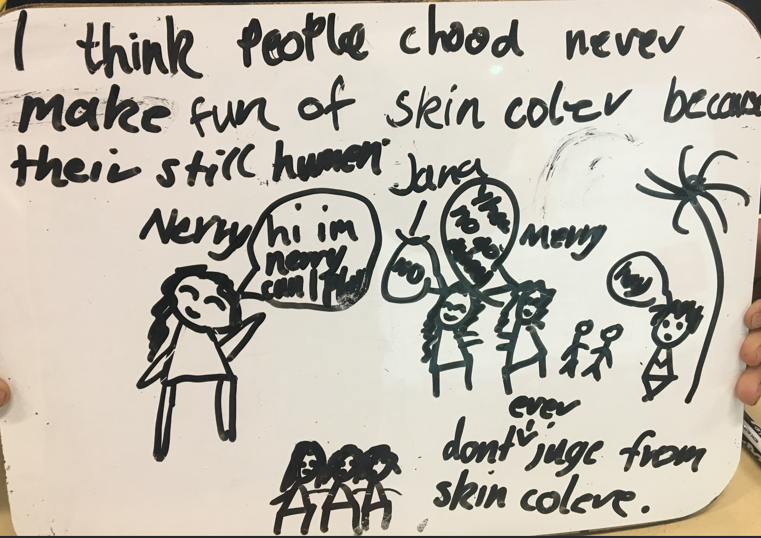 I think people chood never
make fun of skin coler because
their still humen
Jana
Nerry
hi im
nerry
can I play
no
no
Merry
hey
ever
dont juge from
skin colere.